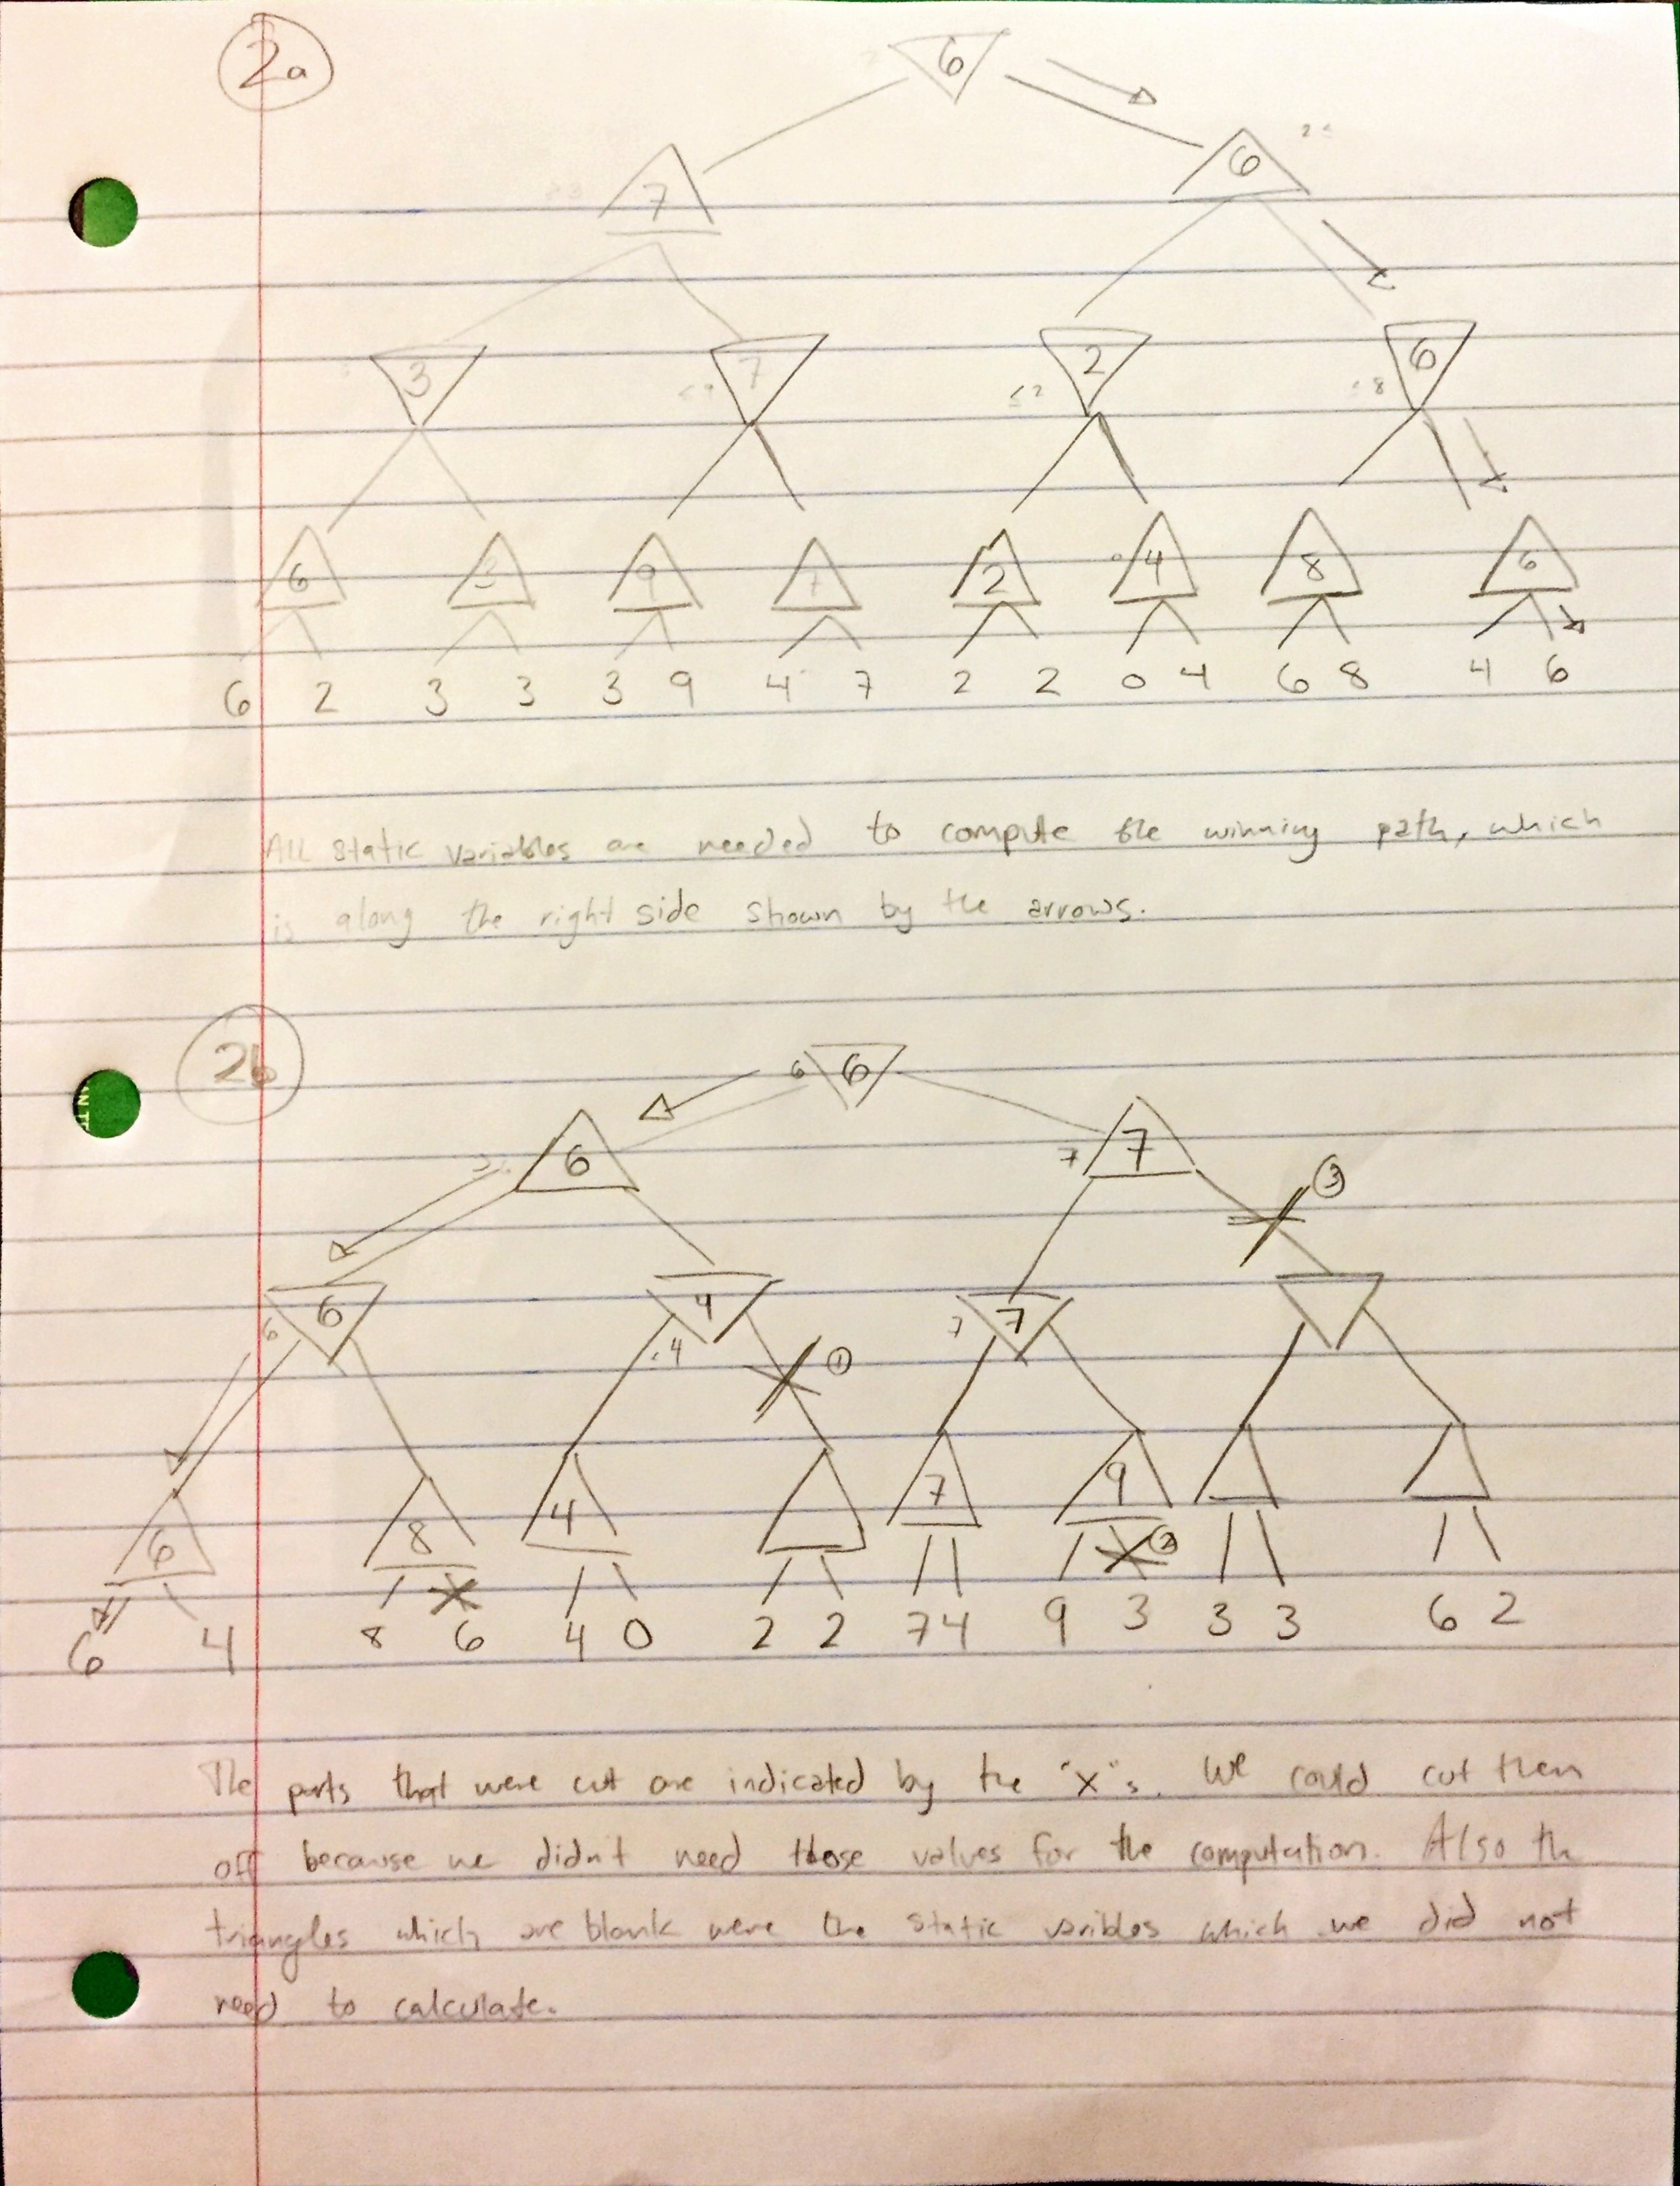 2a
6
7 6
3 7 2 6
6 3 9 7 2 4 8 6
6 2 3 3 3 9 4 7 2 2 0 4 6 8 4 6
All static variables are needed to compute the winning path, which
is along the right side shown by the arrows.
2b
6 6
6 7 7
3
6 4 7 7
6 .4 1
6 8 4 7 9
2
6 4 8 6 4 0 2 2 7 4 9 3 3 3 6 2
The parts that were cut are indicated by the "x"s. We could cut them
off because we didn't need those values for the computation. Also the
triangles which are blank were the static varibles which we did not
need to calculate.